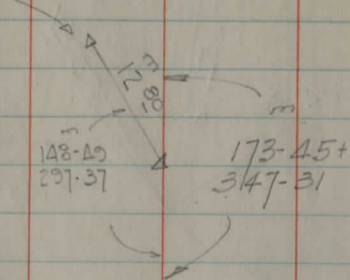 m
12.80
m
148-49
297-37
m
173-45+
347-31